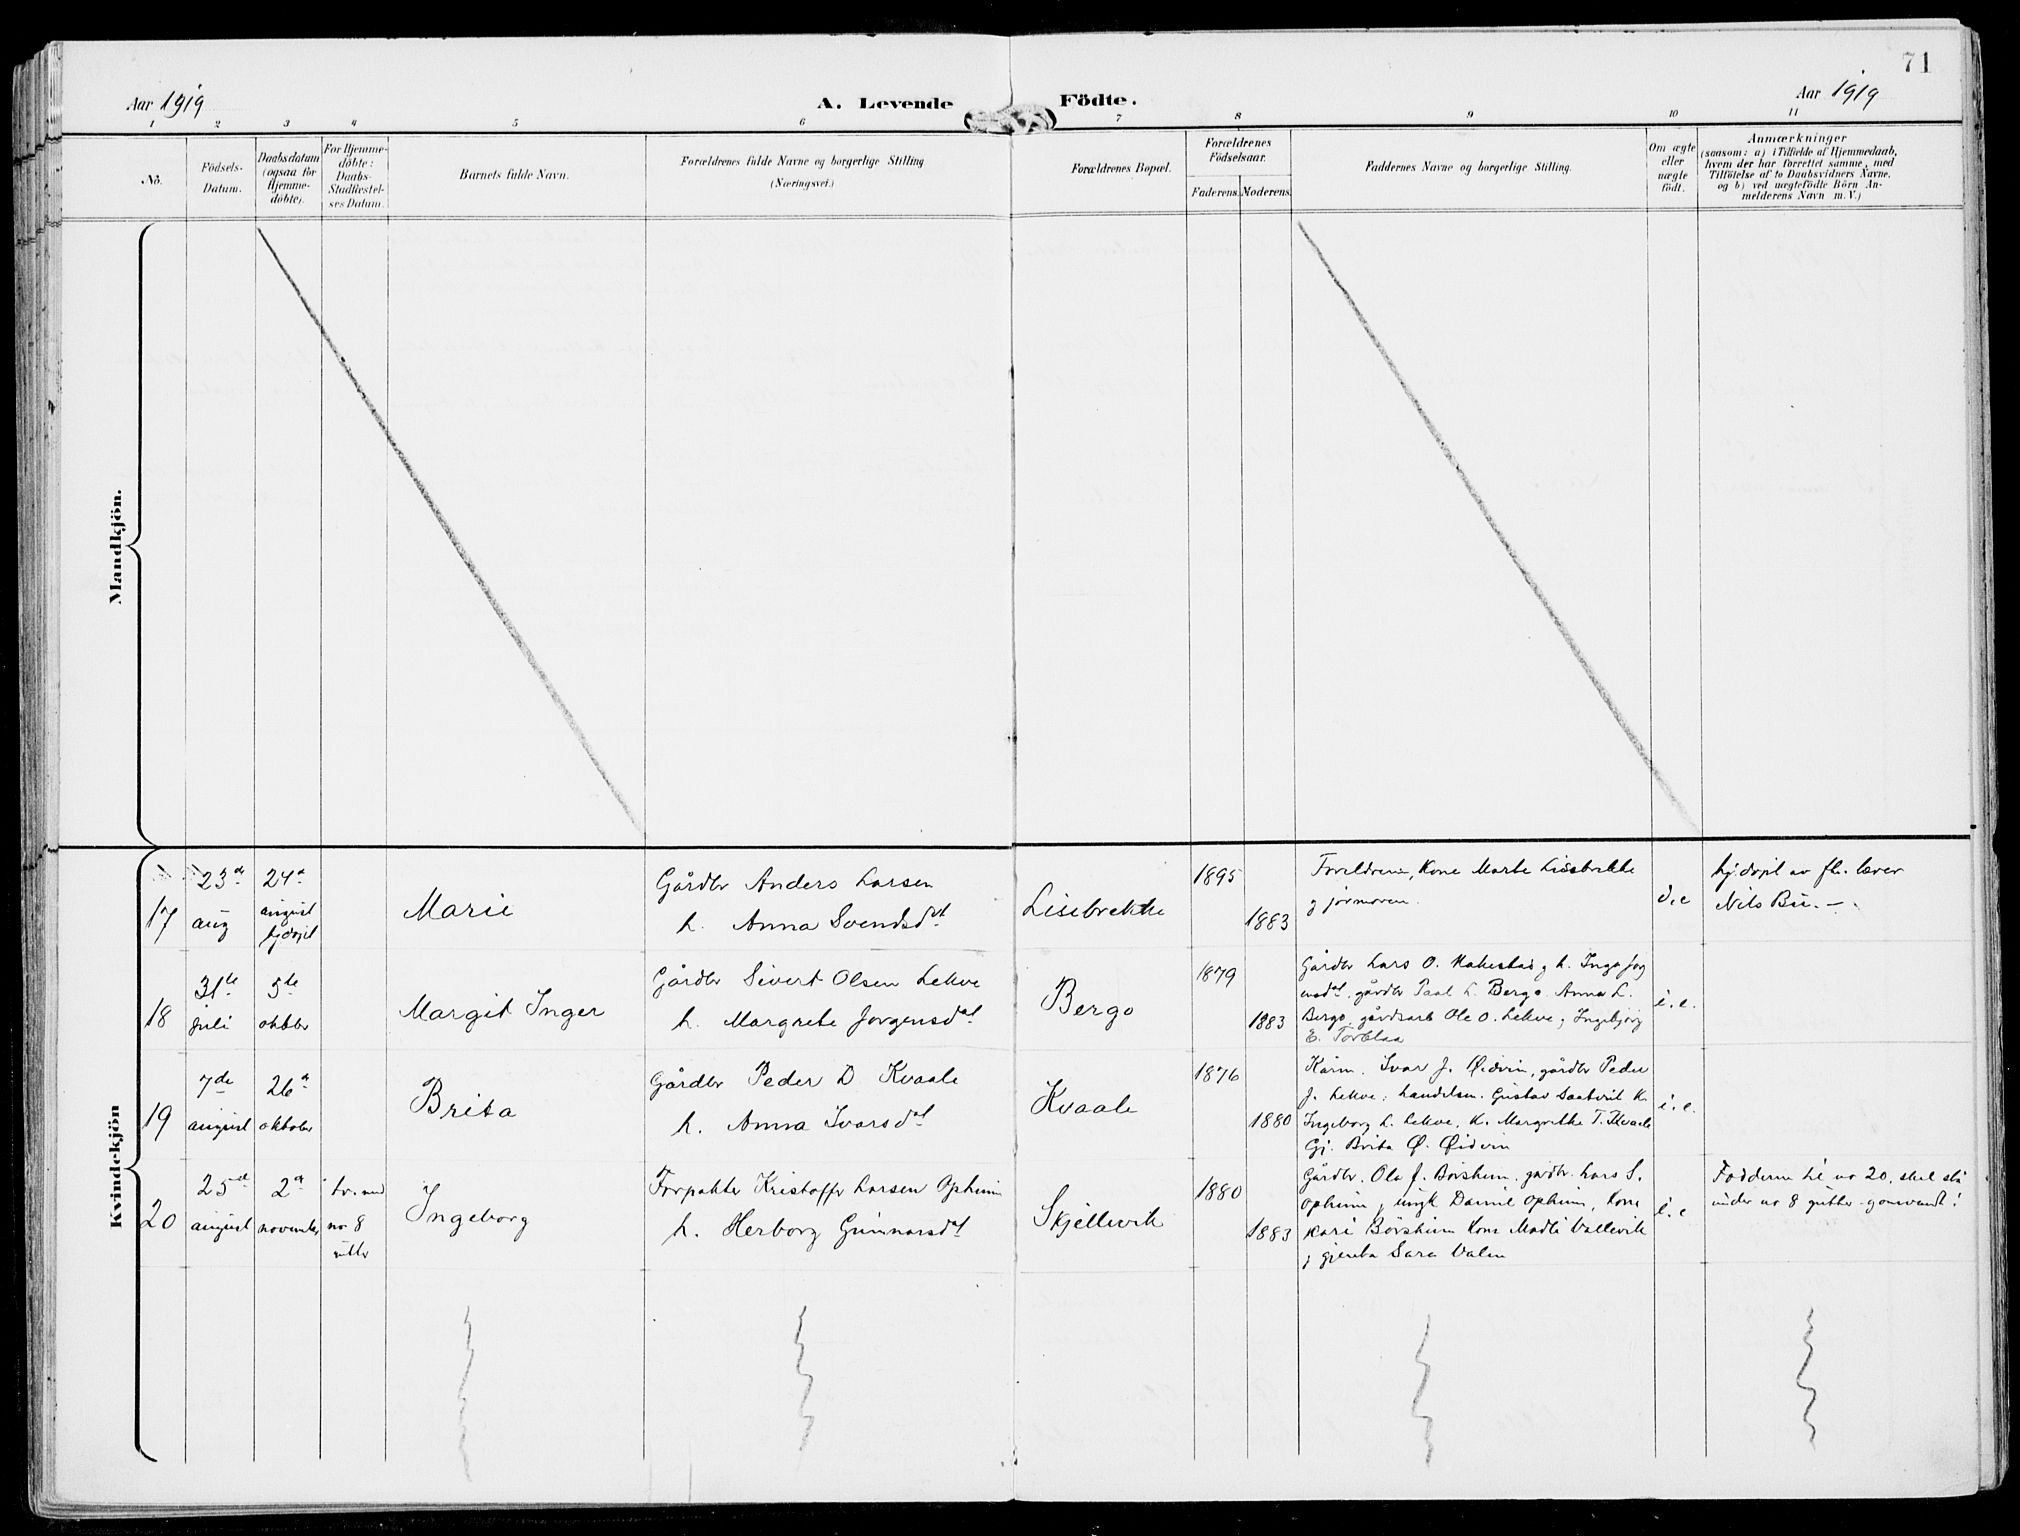 71
Aar 1919
A. Levende Födte.
Aar 1919
1 2 3 4 5 6 7 8 9 10 11
No.
Födsels-
Datum.
Daabsdatum
(ogsaa for
Hjemme-
döbte).
For Hjemme-
döbte:
Daabs-
Stadfæstel-
ses Datum.
Barnets fulde Navn.
Forældrenes fulde Navne og borgerlige Stilling
(Næringsvei.)
Forældrenes Bopæl.
Forældrenes
Födselsaar.
Faderens. Moderens.
Faddernes Navne og borgerlige Stilling.
Om ægte
eller
uægte
født.
Anmærkninger
(saasom: a) i Tilfælde af Hjemmedaab,
hvem der har forrettet samme, med
Tilföielse af to Daabsvidners Navne,
og b) ved uægtefödte Börn An-
melderens Navn m. V.)
Mandkjön.
Kvindekjön
17
23de
aug
24de
august
hjdøpt
Marie
Gårdbr Anders Larsen
h. Anna Svendsdat
Lisebrekke
1895
1883
Foreldrene, Kone Marte Lisebrekke
og jormoren.
hj.døpt av fhv. lærer
Nils Bu. —
18
31te
juli
5te
oktober
Margit Inger
Gårdbr Sivert Olsen Lekve
h. Margrete Jorgensdat
Bergo
1879
1883
Gårdbr Lars O. Hakestad, h. Inga Jorg
ensdat. gårdbr Paal L. Bergo. Anna L.
Bergo, gårdsarb Ole O. Lekve, Ingebjørg
E. Torblaa
i.e.
19
7de
august
26de
oktober
Brita
Gårdbr Peder D Kvaale
h. Anna Ivarsdat
Kvaale
1876
1880
Kårm. Ivar J. Øidvin, gårdbr Peder
J. Lekve, handelsm. Gustav Saatvit K.
Ingeborg L. Lekve, K. Margrethe T. Kvaale
Gj. Brita Ø. Øidvin
i.e.
20
25de
august
2den
november
tv. med
no 8
gutter
Ingeborg
Forpakter Kristoffer Larsen Opheim
h. Herborg Gunnarsdat
Skjellevik
1880
1883
Gårdbr. Ola J. Børsheim, gardbr. Lars S.
Opheim, ungk Daniel Opheim, Kone
Kari Børsheim Kone Madli Vallevik
og gjenta Sara Valen
i.e
Fadderne til no 20, skal stå
under no 8 gutter - omvendt!